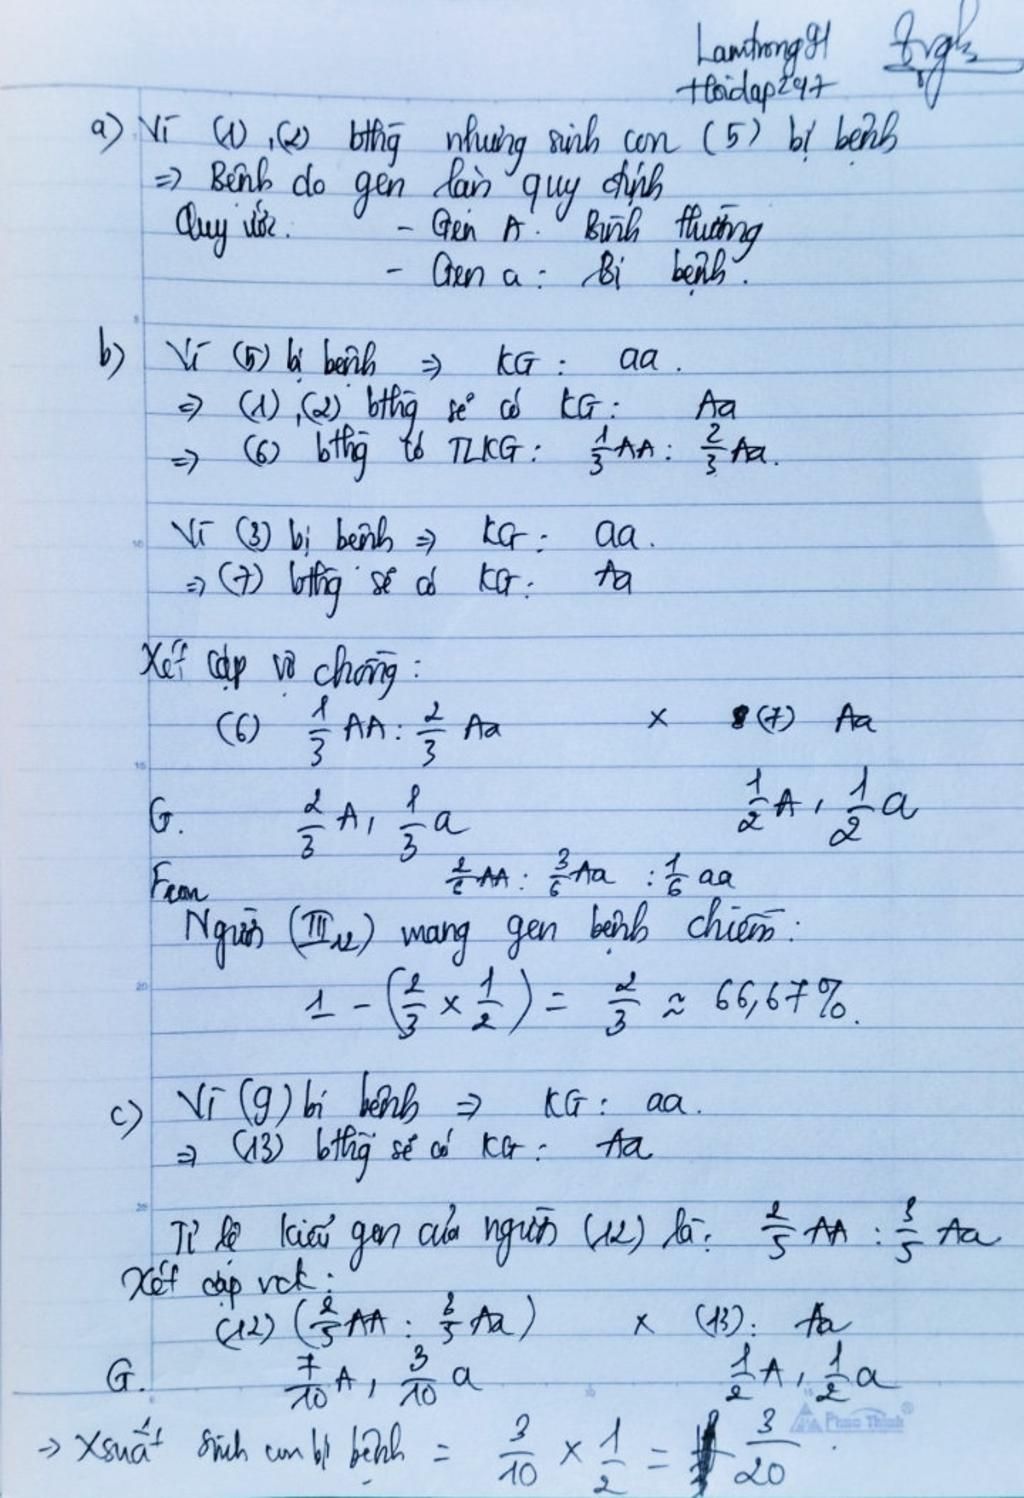 Lamtrong91
Hoidap247
a) Vì (1), (2) bthg nhưng sinh con (5) bị bệnh
=> Bệnh do gen lặn quy định
Quy ước: - Gen A: Bình thường
- Gen a: Bị bệnh.
b) Vì (5) bị bệnh => KG: aa.
=> (1), (2) bthg sẽ có KG: Aa
=> (6) bthg có TLKG: 1/3 AA : 2/3 Aa.
Vì (3) bị bệnh => KG: aa.
=> (7) bthg sẽ có KG: Aa
Xét cặp vợ chồng:
(6) 1/3 AA : 2/3 Aa x (7) Aa
G. 2/3 A, 1/3 a 1/2 A, 1/2 a
Fcon 2/6 AA : 3/6 Aa : 1/6 aa
Người (III12) mang gen bệnh chiếm:
1 - (2/3 x 1/2) = 2/3 ≈ 66,67%.
c) Vì (9) bị bệnh => KG: aa.
=> (13) bthg sẽ có KG: Aa
Tỉ lệ kiểu gen của người (12) là: 2/5 AA : 3/5 Aa
Xét cặp vck:
(12) (2/5 AA : 3/5 Aa) x (13): Aa
G. 7/10 A, 3/10 a 1/2 A, 1/2 a
-> Xsuất sinh con bị bệnh = 3/10 x 1/2 = 3/20.